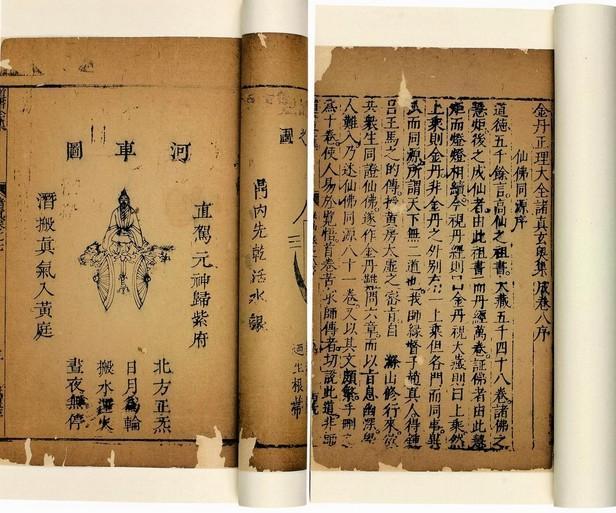 河車圖
直駕元神歸紫府
潛搬真氣入黃庭
北方正炁
日月為輪
搬水運火
晝夜無停
圖
內先乾活水銀
根蒂
金丹正理大全諸真玄奧集成卷八序
仙佛同源序
道德五千餘言高仙之祖書大藏五千四十八卷諸佛之
慧炬後之成仙者由此祖書而丹經萬卷證佛者由此慧
炬而燈燈相續今視丹經則曰金丹視大藏則曰上乘然
上乘則金丹非金丹之外別有一上乘但各門而同事異
派而同源所謂天下無二道也我師緣督子趙真人得鍾
呂王馬之的傳授黃房大虛之密旨自 滁山修行來欲
與眾生同證仙佛遂作金丹問六章而以言意幽深學
人難入乃述仙佛同源八十一卷又以其文頗繁手刪之
為十卷使人易於覽悟首卷苦求師傳者切說此道非師